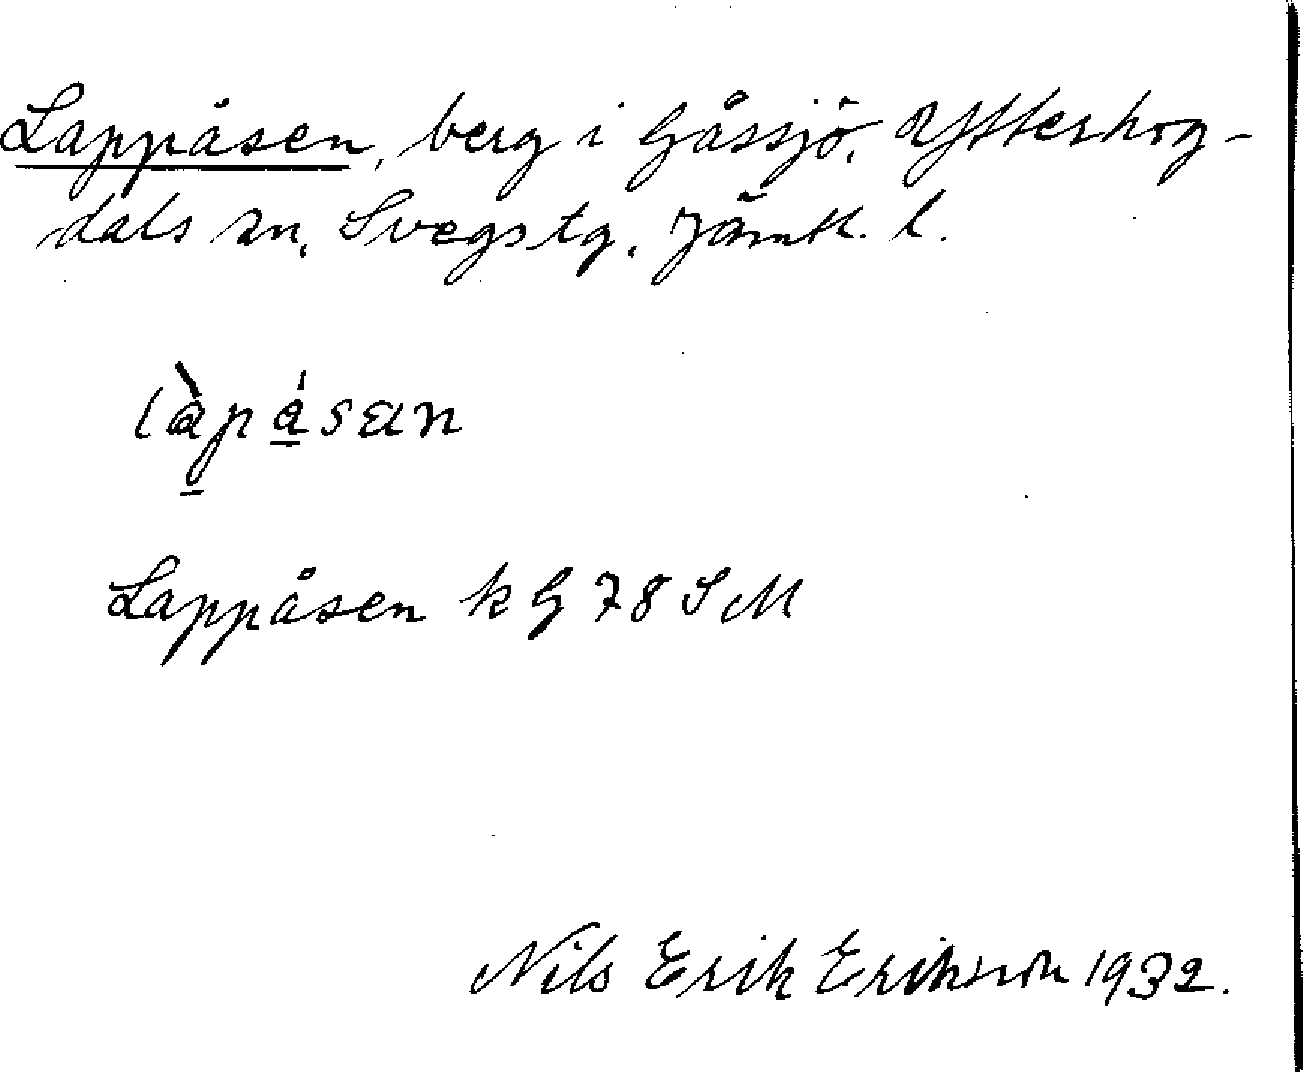 Lappåsen, berg i Gåssjö, Ytterhog-
dals sn, Svegs tg, Jämtl. l.
Lappåsen k G 78 SM
Nils Erik Erikson 1932.